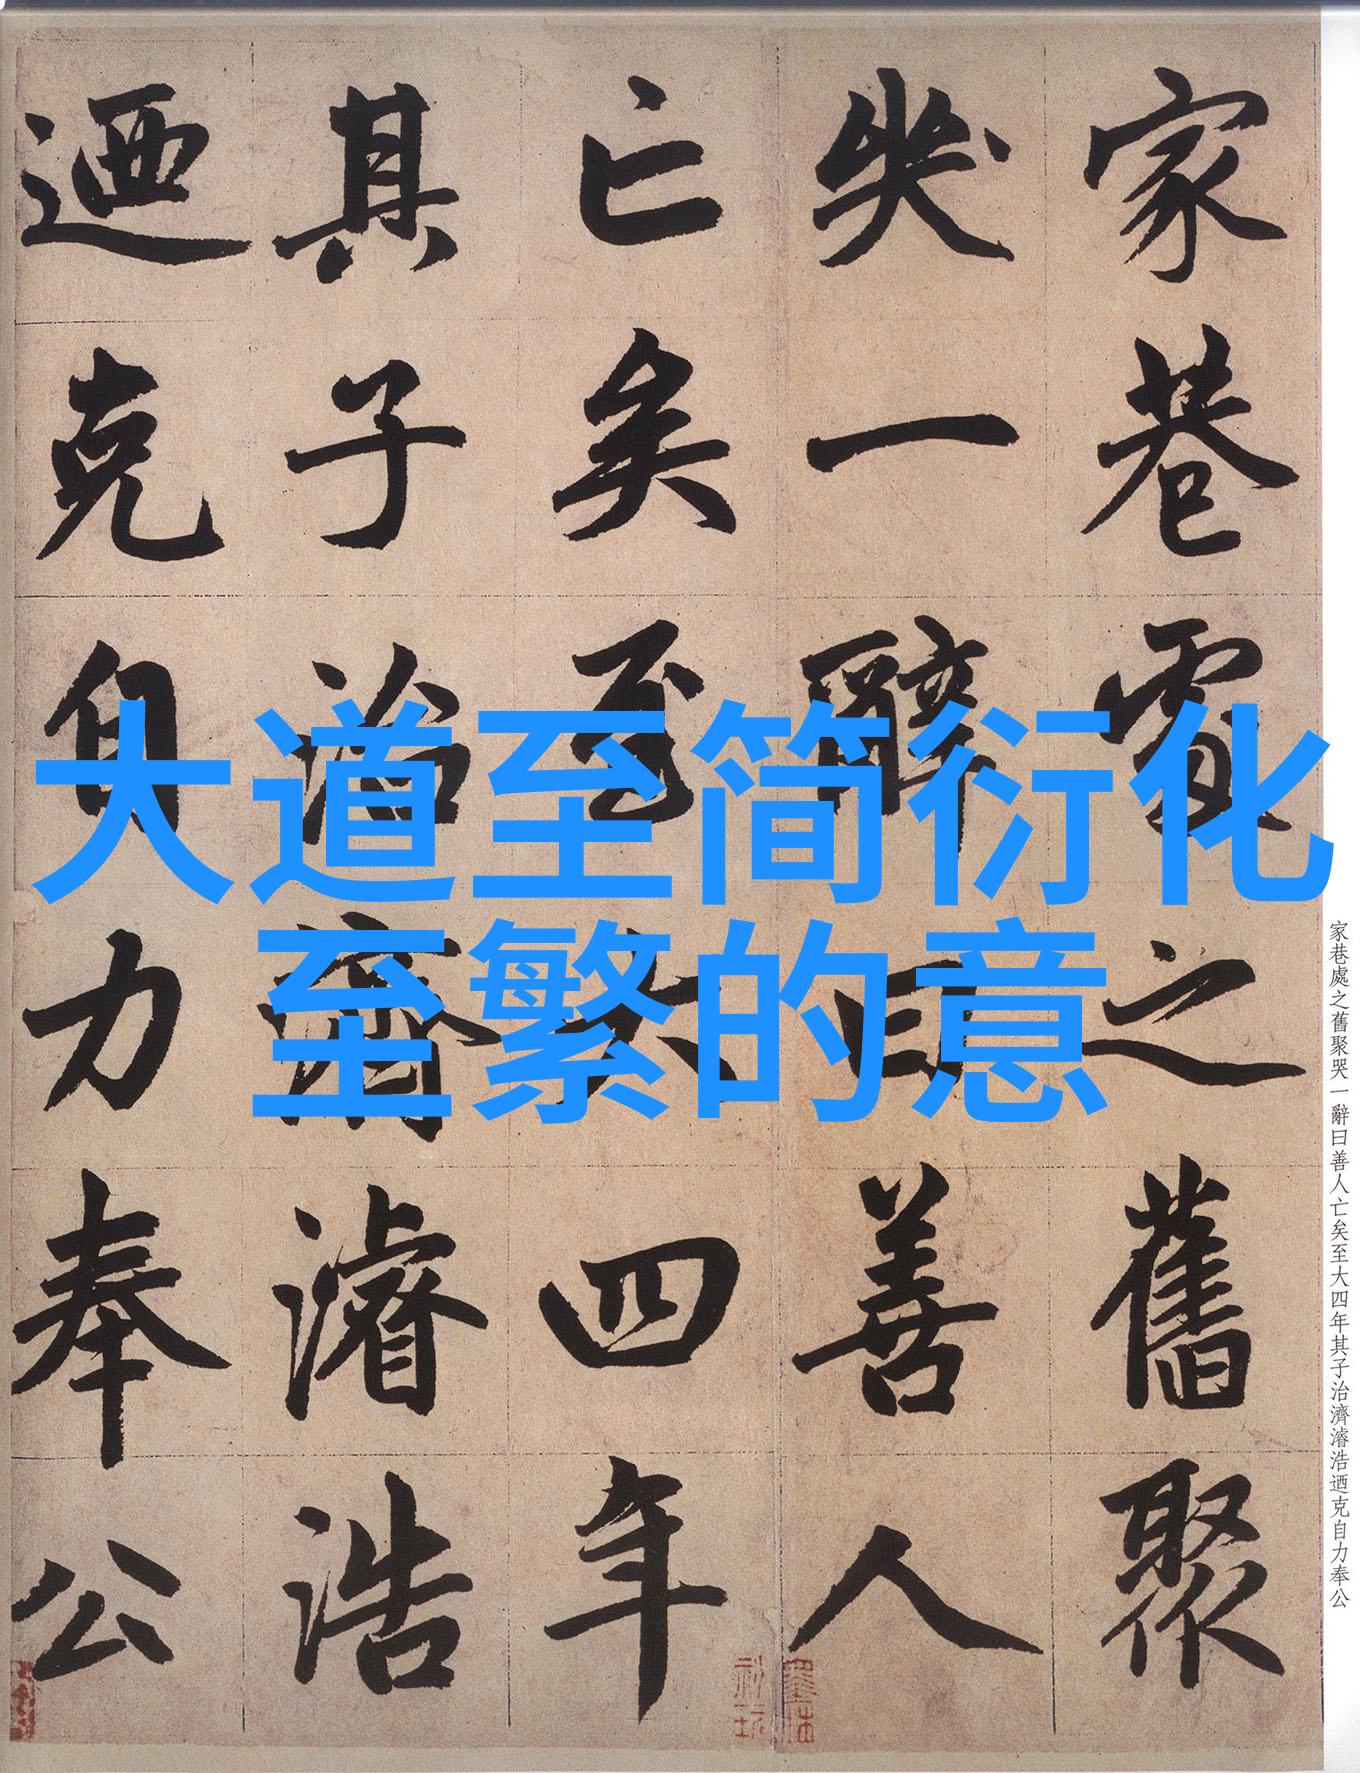 家巷處之舊聚
哭一辭曰善人
亡矣至大四年
其子治濟濬浩
迺克自力奉公
大道至简衍化
至繁的意
家巷處之舊聚哭一辭曰善人亡矣至大四年其子治濟濬浩迺克自力奉公